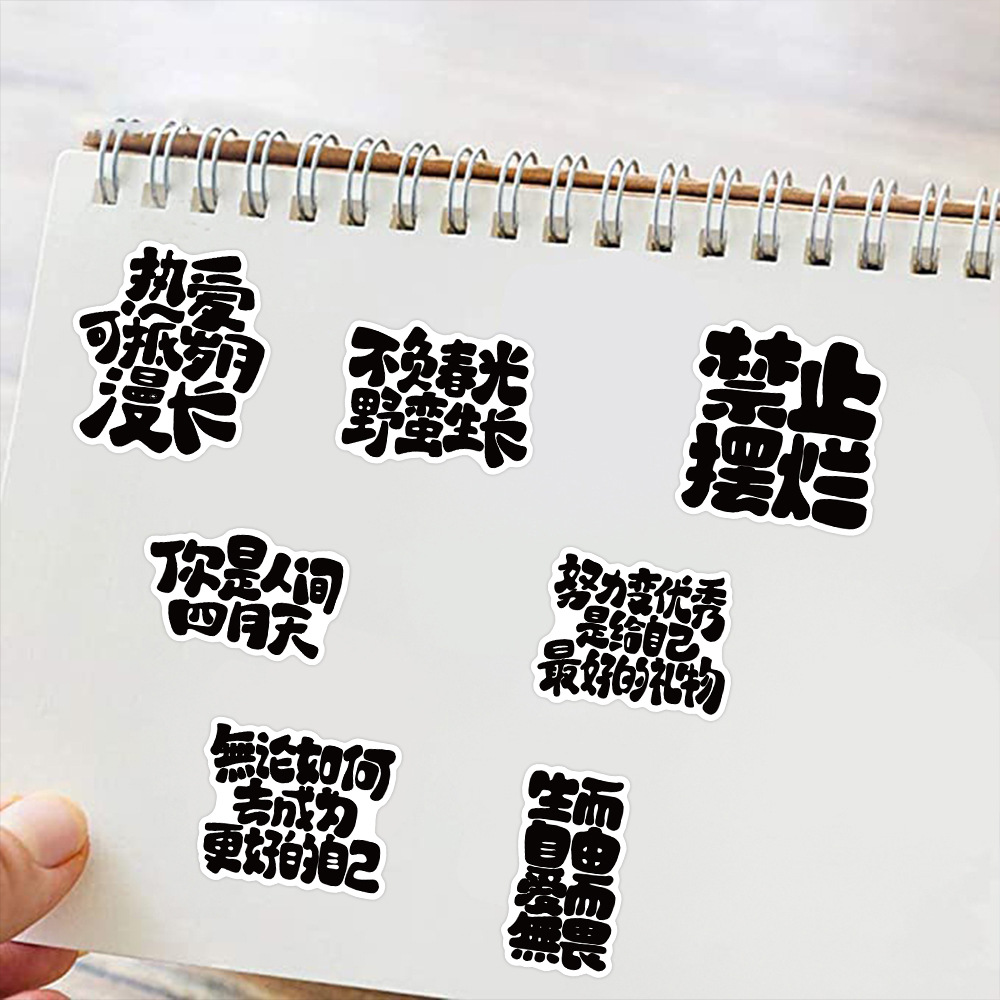 热爱
可抵岁月
漫长
不负春光
野蛮生长
禁止
摆烂
你是人间
四月天
努力变优秀
是给自己
最好的礼物
無论如何
去成为
更好的自己
生而
自由
爱而
無畏